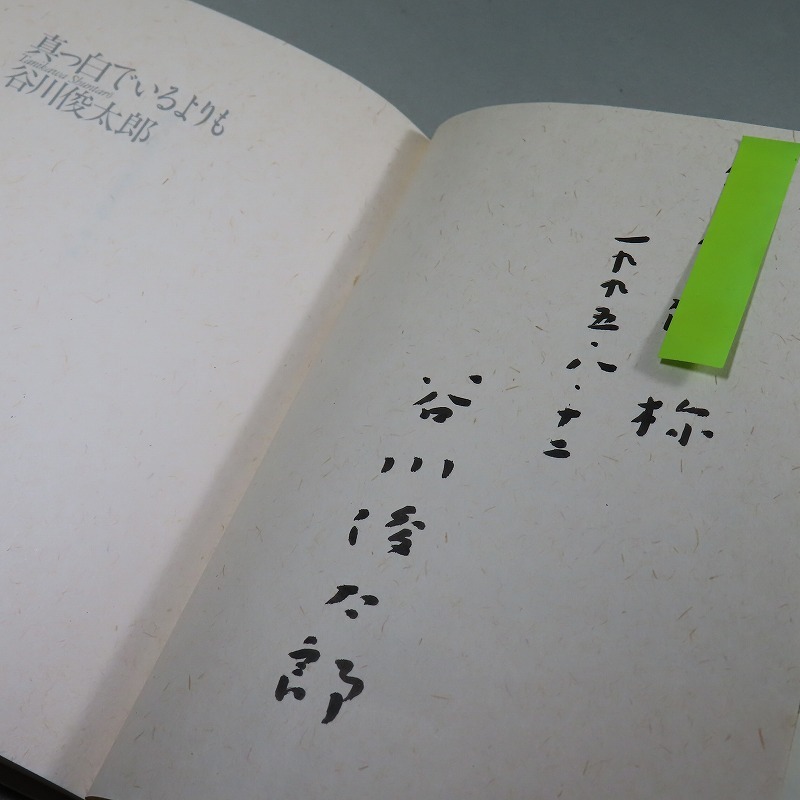 真っ白でいるよりも
Tanikawa Shuntarō
谷川俊太郎
様
一九九五・八・十二
谷川俊太郎